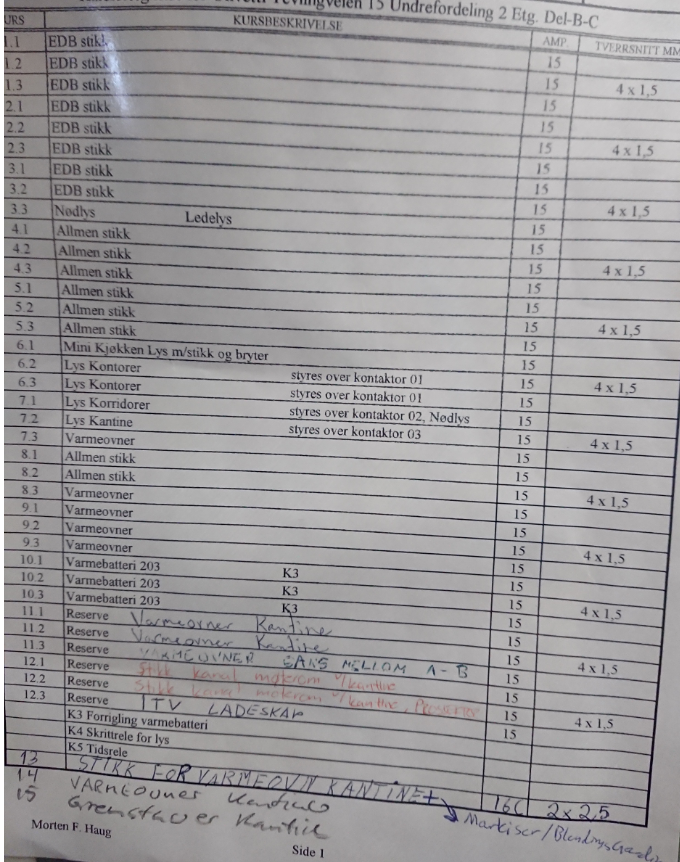 Tevlingveien 15 Undrefordeling 2 Etg. Del-B-C
KURSBESKRIVELSE AMP. TVERRSNITT MM
1.1 EDB stikk 15
1.2 EDB stikk 15
1.3 EDB stikk 15 4 x 1,5
2.1 EDB stikk 15
2.2 EDB stikk 15
2.3 EDB stikk 15 4 x 1,5
3.1 EDB stikk 15
3.2 EDB stikk 15
3.3 Nødlys Ledelys 15 4 x 1,5
4.1 Allmen stikk 15
4.2 Allmen stikk 15
4.3 Allmen stikk 15 4 x 1,5
5.1 Allmen stikk 15
5.2 Allmen stikk 15
5.3 Allmen stikk 15 4 x 1,5
6.1 Mini Kjøkken Lys m/stikk og bryter 15
6.2 Lys Kontorer styres over kontaktor 01 15
6.3 Lys Kontorer styres over kontaktor 01 15 4 x 1,5
7.1 Lys Korridorer styres over kontaktor 02, Nødlys 15
7.2 Lys Kantine styres over kontaktor 03 15
7.3 Varmeovner 15 4 x 1,5
8.1 Allmen stikk 15
8.2 Allmen stikk 15
8.3 Varmeovner 15 4 x 1,5
9.1 Varmeovner 15
9.2 Varmeovner 15
9.3 Varmeovner 15 4 x 1,5
10.1 Varmebatteri 203 K3 15
10.2 Varmebatteri 203 K3 15
10.3 Varmebatteri 203 K3 15 4 x 1,5
11.1 Reserve Varmeovner Kantine 15
11.2 Reserve Varmeovner Kantine 15
11.3 Reserve VARMEOVNER GANG MELLOM A-B 15 4 x 1,5
12.1 Reserve Stikk kanal møterom v/kantine 15
12.2 Reserve Stikk kanal møterom v/kantine, 15
12.3 Reserve ITV LADESKAP 15 4 x 1,5
K3 Forrigling varmebatteri
K4 Skrittrele for lys
K5 Tidsrele
13 STIKK FOR VARMEOVN KANTINE+ 16C 2x2,5
14 VARMEOVNER Kantine Markiser/
15 Kantine
Morten F. Haug
Side 1